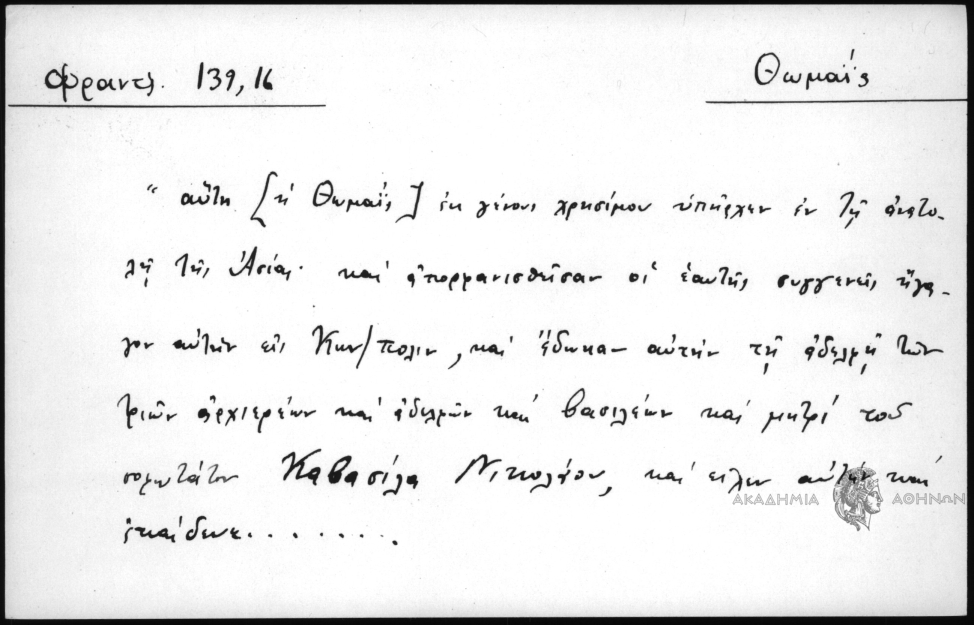 Φραντζ. 139,16
Θωμαΐς
" αὕτη [ἡ Θωμαΐς] ἐκ γένους χρησίμου ὑπῆρχεν ἐν τῇ ἀνατο-
λῇ τῆς Ἀσίας· καὶ ἀπορφανισθεῖσαν οἱ ἑαυτῆς συγγενεῖς ἤγα-
γον αὐτὴν εἰς Κων/πολιν, καὶ ἔδωκαν αὐτὴν τῇ ἀδελφῇ τῶν
τριῶν ἀρχιερέων καὶ ἀδελφῶν καὶ βασιλέων καὶ μητρὶ τοῦ
σοφωτάτου Καβασίλα Νικολάου, καὶ εἶχεν αὐτὴν καὶ
ἐπαίδευε........
ΑΚΑΔΗΜΙΑ ΑΘΗΝΩΝ